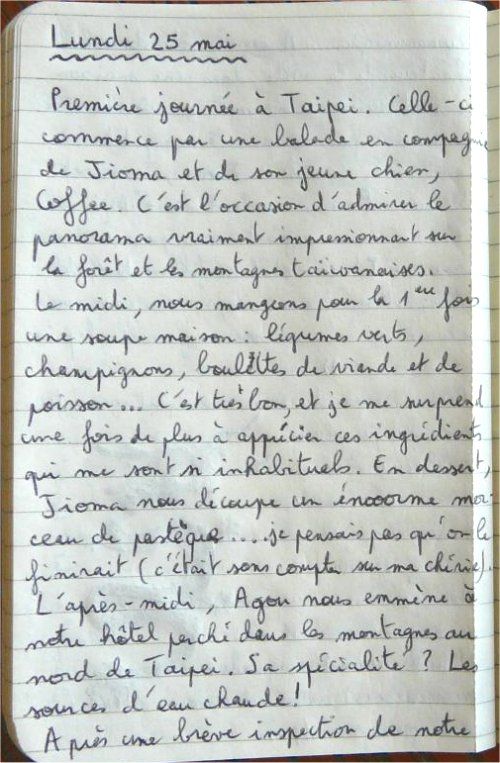 Lundi 25 mai
Première journée à Taipei. Celle-ci
commence par une balade en compagnie
de Jioma et de son jeune chien,
Coffee. C'est l'occasion d'admirer le
panorama vraiment impressionnant sur
la forêt et les montagnes taïwanaises.
Le midi, nous mangeons pour la 1ère fois
une soupe maison : légumes verts,
champignons, boulettes de viande et de
poisson... C'est très bon, et je me surprend
une fois de plus à apprécier ces ingrédients
qui me sont si inhabituels. En dessert,
Jioma nous découpe un énooorme mor-
ceau de pastèque.... je pensais pas qu'on le
finirait (c'était sans compter sur ma chérie).
L'après-midi, Agou nous emmène à
notre hôtel perché dans les montagnes au
nord de Taipei. Sa spécialité ? Les
sources d'eau chaude !
Après une brève inspection de notre